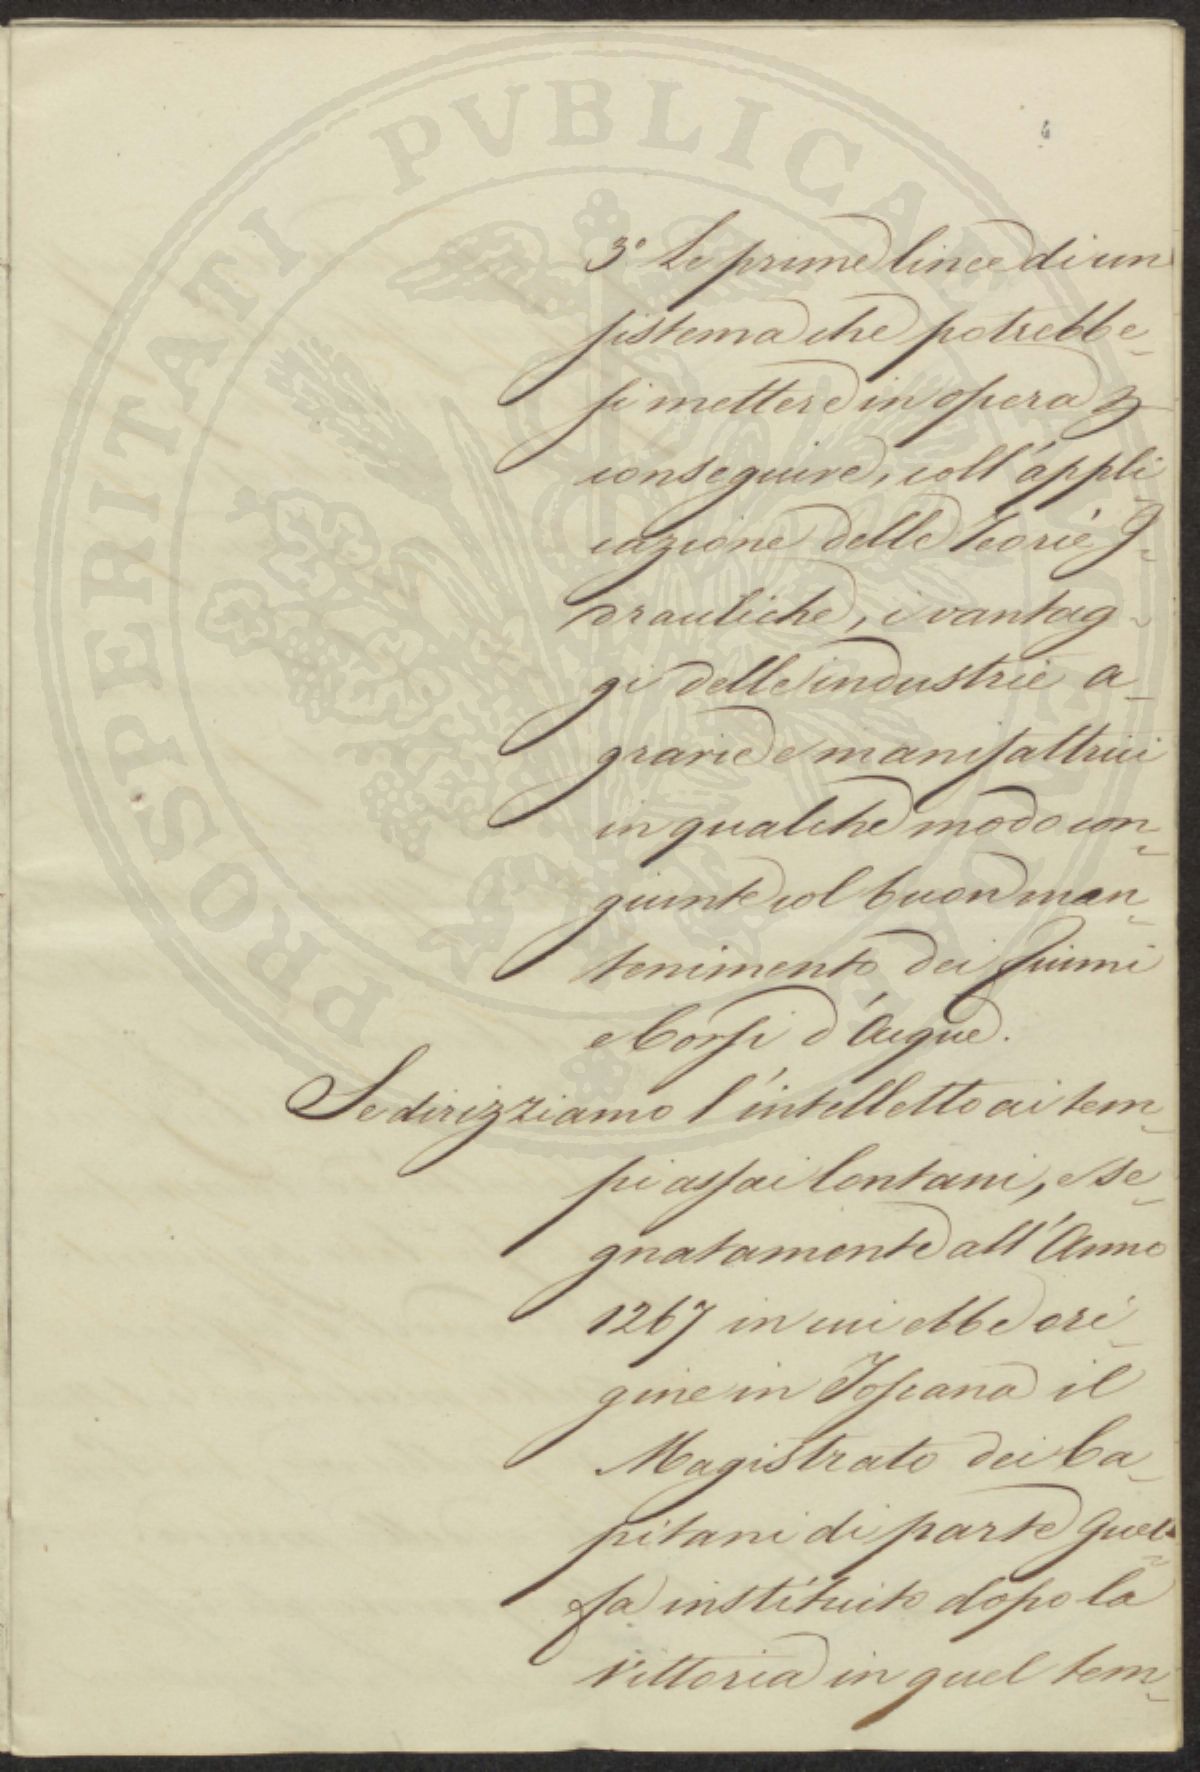 PROSPERITATI PUBLICAE
3° Le prime linee di un
sistema che potrebbe-
si mettere in opera p
conseguire, coll'appli-
cazione delle Teorie I-
drauliche, i vantag-
gi delle industrie a-
grarie e manifattrici
in qualche modo con-
giunte col buon man-
tenimento dei fiumi
e Corsi d'Acque.
Se dirizziamo l'intelletto ai tem-
pi assai lontani, e se-
gnatamente all'Anno
1267 in cui ebbe ori-
gine in Toscana il
Magistrato dei Ca-
pitani di parte Guel-
fa instituito dopo la
Vittoria in quel tem-